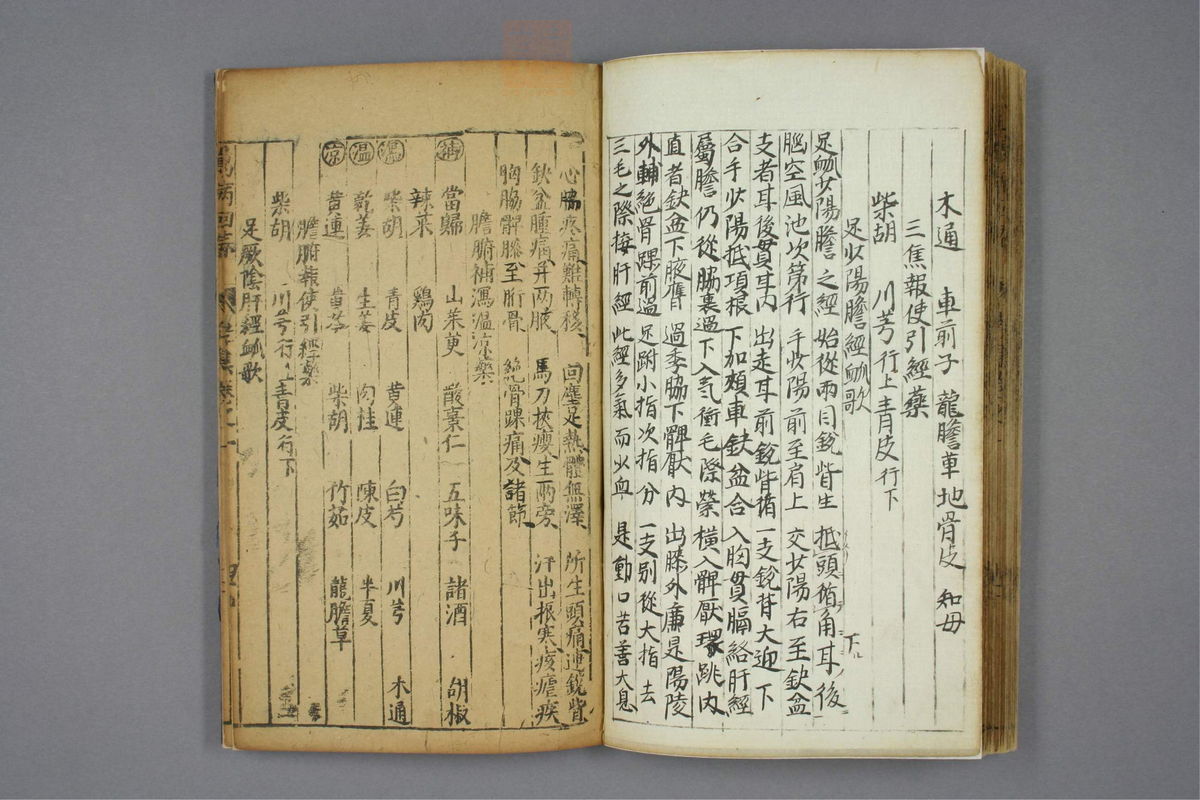 木通 車前子 龍膽草 地骨皮 知母
三焦報使引經藥
柴胡 川芎行上 青皮行下
足少陽膽經䘑歌
足䘑少陽膽之經 始從兩目銳眥生 抵頭循角耳後 下
腦空風池次第行 手少陽前至肩上 交少陽右至缺盆
支者耳後貫耳內 出走耳前銳眥循 一支銳眥大迎下
合手少陽抵項根 下加頰車缺盆合 入胸貫膈絡肝經
屬膽仍從脇裏過 下入氣衝毛際縈 橫入髀厭環跳內
直者缺盆下腋膺 過季脇下髀厭內 出膝外廉是陽陵
外輔絕骨踝前過 足跗小指次指分 一支別從大指去
三毛之際接肝經 此經多氣而少血 是動口苦善大息
心脇疼痛難轉移 面塵足熱體無澤 所生頭痛連銳眥
缺盆腫痛并兩腋 馬刀挾癭生兩旁 汗出振寒痎瘧疾
胸脇髀膝至胻骨 絕骨踝痛及諸節
膽腑補瀉溫涼藥
補 當歸 山茱萸 酸棗仁 五味子 諸酒 胡椒
辣菜 鷄肉
瀉 柴胡 青皮 黃連 白芍 川芎 木通
溫 乾姜 生姜 肉桂 陳皮 半夏
涼 黃連 黃芩 柴胡 竹茹 龍膽草
膽腑報使引經藥
柴胡 川芎行上 青皮行下
足厥陰肝經䘑歌
萬病回春